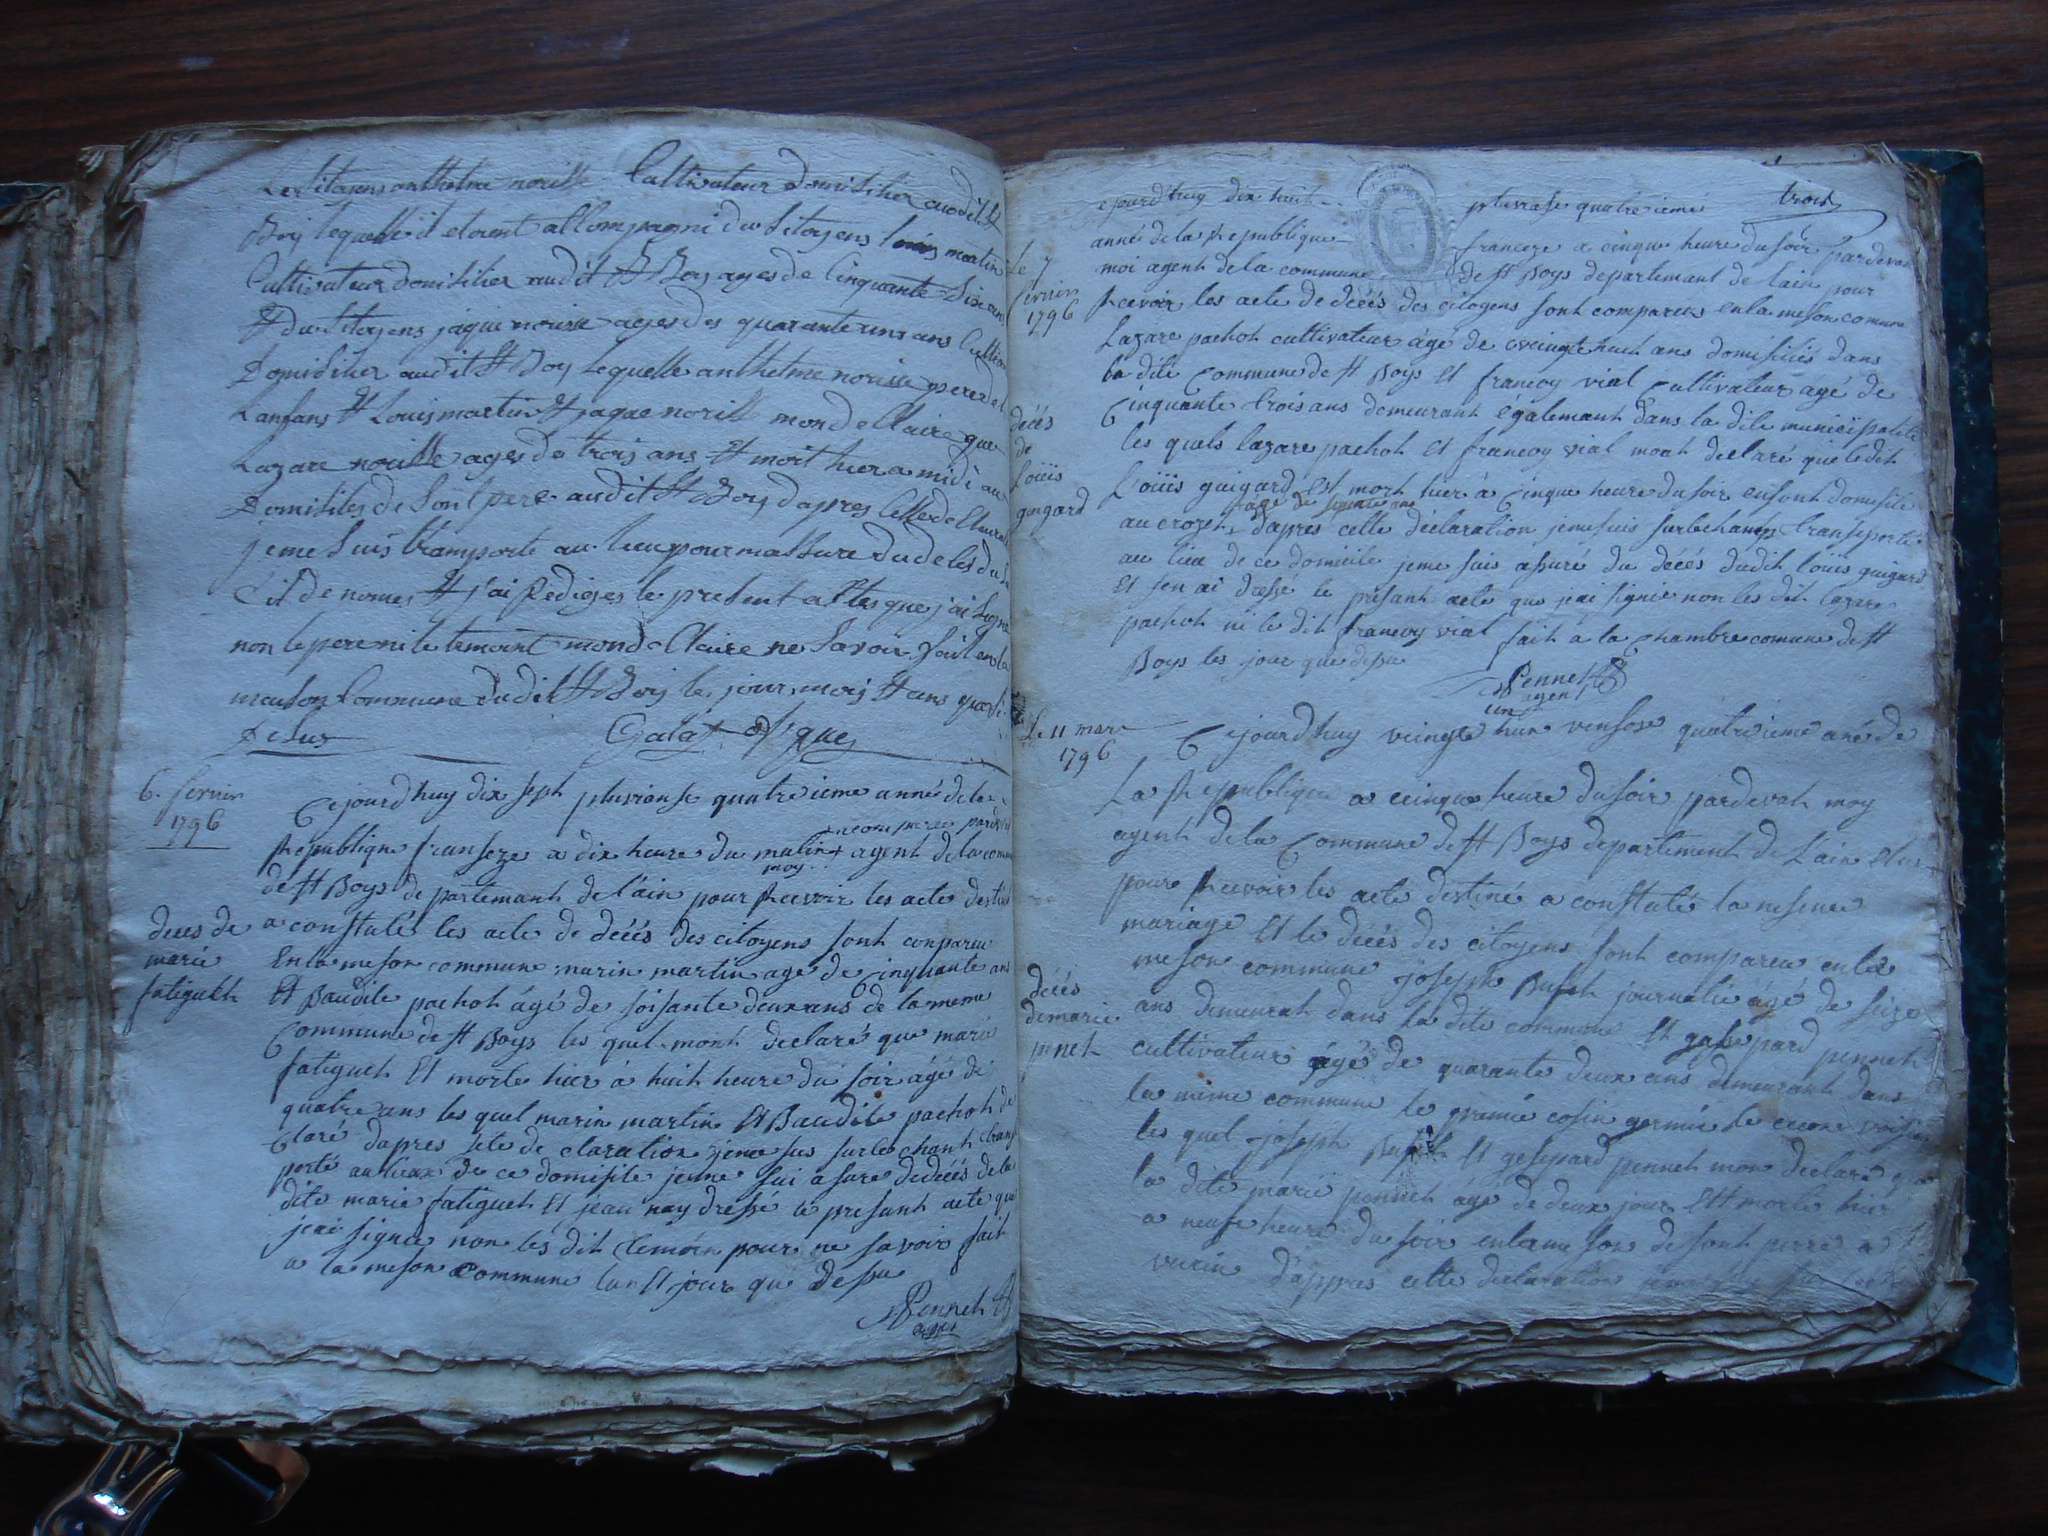 Cultivateur domisilier audit St
Boy lequelle il etoient accompagni du sitoyens louis martin
Cultivateur domisilier audit St Boy ages de cinquante six ans
St du sitoyens jaque norisse ages des quarante uns ans
domisilier audit St Boy lequelle anthelme norisse pere de
Lanfans St Louis martin St jaque norisse mon declaire que
Lazare norisse ages de trois ans St mort hier a midi au
domisiles de son pere audit St Boy dapres celle de
je me suis transporte au lieu pour massure du deces du
St j'ai Rediges le present actes que j'ai signe
non le pere ni le temoins mon declaire ne savoir fait en la
maison commune dudit St Boy les jour mois St ans que
desus
6. fevrier
1796
Cejourdhuy dix seph pluviause quatreieme année de la
Republique franseze a dix heure du matin agent de la
moy
de St Boys departemant de l'ain pour Recevoir les acte
deces de
marie
fatigueth
a constaté les acte de décés des citoyens sont comparu
En la meson commune marin martin age de cinquante ans
Et Baudile pachoh ágé de soisante deux ans de la meme
Commune de St Boys les quel mont declaré que marie
fatigueh Et morte hier á huit heure du soir ágé de
quatre ans les quel marin martin Et Baudile pachoh de
claré dapres sete de claration jeme sus surle chanh trans
porté au lieux de ce domisile jeme sui asure du décés de la
dite marie fatigueh Et jean nay dressé le presant acte que
jeai signée non lés dit temoin pour ne savoir fait
a la meson commune lan Et jour que dessu
Penneh
agen
trois
cejourdhuy dix huit quatre ieme
année de la Republique franceze a cinque heure du soir pardevan
Le 7
fevrier
1796
moi agent de la commune de St Boys departemant de lain pour
Recevoir les acte de décés des citogens sont comparus en la meson comune
Lazare pachoh cultivateur ágé de veingte huit ans domisiliés dans
la dite Commune de St Boys Et francoy vial Cultivateur agé de
Cinquante trois ans demeurant également dans la dite municipalité
décés
de
Loüis
guigard
les quels lazare pachoh Et francoy vial monh déclaré que ledit
Loüis guigard Est morh hier á Cinque heure du soir en sont domisile
agé de
au crozeh dapres cette déclaration jeme suis surlechamp transporté
au lieu de ce domicile jeme suis assuré du décés dudit loüis guigard
Et jen ai dressé le présant acte que jai signée non les dit lazare
pachoh ni le dit francoy vial fait á la Chambre comune de St
Boys les jour que dessu
Penneh
agen
Le 11 mars
1796
Cejourdhuy veingte hun vensose quatreieme ané de
La Republique a cinque heure du soir pardevah moy
agent de la Commune de St Boys departement de Lain Elus
pour Recevoir les acte destiné a constaté la nesence
mariage Et le décés des citoyens sont comparu en la
décés
de marie
peneh
meson commune joseph journalié ágé de seize
ans demeurah dans la dite commune Et gaspard penneh
cultivateur ágé de quarante deux ans demeurant dans
la méme commune le premié cosin germin le voisin
les quel joseph Et gesepard penneh mon declaré que
la dite marie penneh ágé de deux jour Est morte hier
a neufe heure du soir en la meson de sont perre a
dappres cette declaration